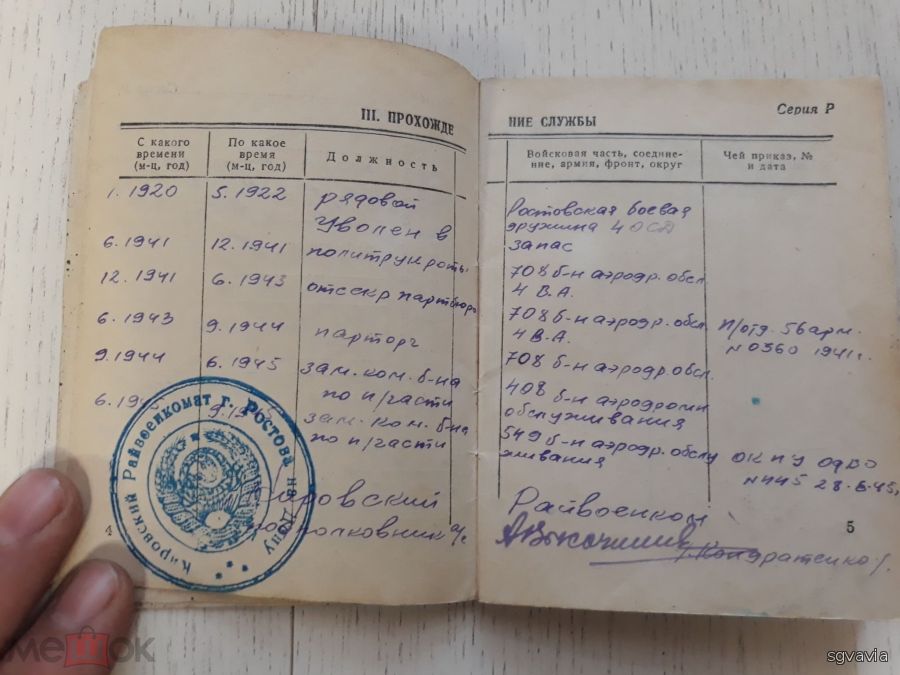 III. ПРОХОЖДЕ
С какого времени (м-ц, год)
По какое время (м-ц, год)
Должность
1. 1920 5. 1922 рядовой
Уволен в
6. 1941 12. 1941 политрук роты
12. 1941 6. 1943 отсекр партбюро
6. 1943 9. 1944 парторг
9. 1944 6. 1945 зам. ком. б-на
по п/части
6. 19 9. 19
зам. ком. б-на
по п/части
Кировский
полковник а/с
Кировский Райвоенкомат г. Ростова на Дону
4
Серия Р
НИЕ СЛУЖБЫ
Войсковая часть, соединение, армия, фронт, округ
Чей приказ, № и дата
Ростовская боевая
дружина 4 ОСД
запас
708 б-н аэродр. обсл
4 В.А.
708 б-н аэродр. обсл.
4 В.А.
П/отд. 56 арм.
№ 0360 1941 г.
708 б-н аэродр. обсл.
408 б-н аэродромн
обслуживания
549 б-н аэродр. обслу
живания
ОКПУ ОдВО
№ 445 28.6.45.
Райвоенком
г. Кондратенко г.
5
мешок
sgvavia